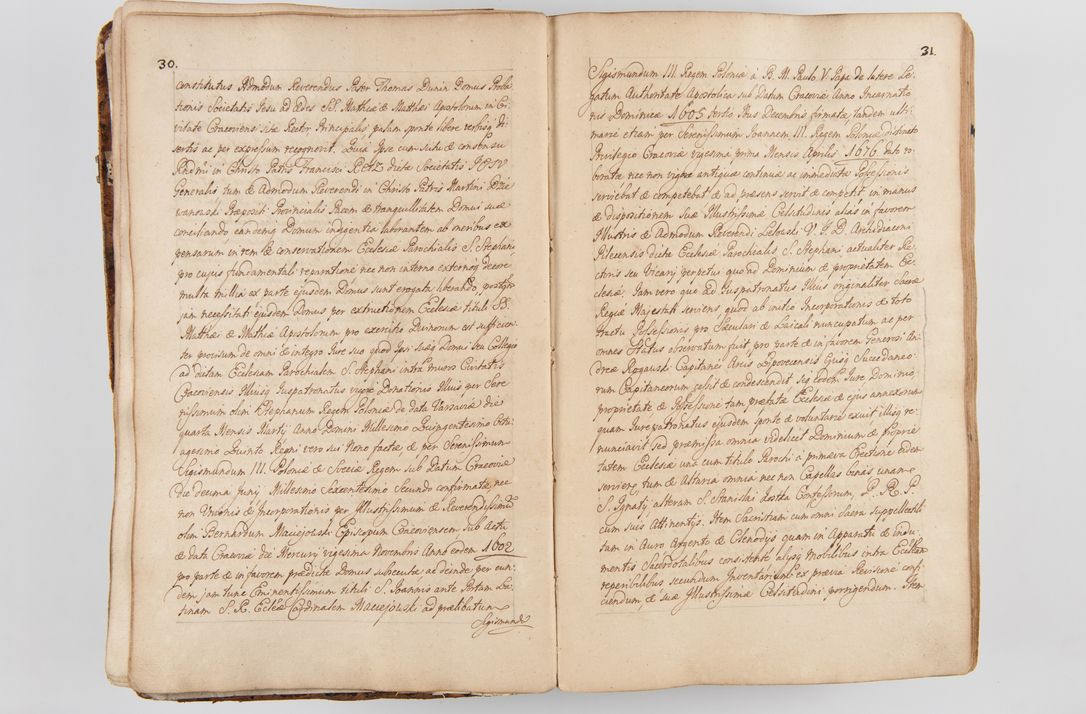 30.
constitutus Admodum Reverendus Pater Thomas Dunin Domus Proba
tionis Societatis Jesu ad Ædes SS. Mathiæ & Matthæi Apostolorum in Ci
vitate Cracoviensi sitæ Rector Principalis, palam sponte libere verbisq. di
sertis ac per expressum recognovit. Quia Ipse cum scitu & consensu
Rndmi in Christo Patris Francisci RETZ dictæ Societatis JESU
Generalis tum & Admodum Reverendi in Christo Patris Martini
vanowski Præpositi Provincialis Pacem & tranquillitatem Domus suæ
conciliando eandemq. Domum indigentia laborantem ab oneribus ex
pensarum in rem & conservationem Ecclesiæ Parochialis S. Stephani,
pro cujus fundamentali reparatione nec non interno externoq. decore
multa millia ex parte ejusdem Domus sunt erogata liberando, postqm
jam necessitati ejusdem Domus per extructionem Ecclesiæ tituli SS.
Matthæi & Mathiæ Apostolorum pro exercitio Divinorum est sufficien
ter provisum de omni & integro Jure suo quod Ipsi suæq. Domui seu Collegio
ad dictam Ecclesiam Parochialem S. Stephani intra muros Civitatis
Cracoviensis Illiusq. Juspatronatus vigore Donationis Illius per Sere
nissimum olim Stephanum Regem Poloniæ de data Varsaviæ die
quarta Mensis Martij Anno Domini Millesimo Quingentesimo Octu
agesimo Quinto Regni vero sui Nono factæ, & per Serenissimum
Sigismundum III. Poloniæ & Sveciæ Regem sub Datum Cracoviæ
Die decima Junij Millesimo Sexcentesimo Secundo confirmatæ nec
non Unionis & Incorporationis per Illustrissimum & Reverendissimum
olim Bernardum Maciejowski Episcopum Cracoviensem sub Actu
& data Cracoviæ die Mercurij vigesima Novembris Anno eodem 1602
pro parte & in favorem prædictæ Domus subsecutæ ac deinde per eun
dem, jam tunc Eminentissimum tituli S. Joannis ante Portam La
tinam S. R. Ecclæ Cardinalem Maciejowski ad prælibatum
Sigismund
31.
Sigismundum III. Regem Poloniæ à B. M. Paulo V. Papa de latere Le
gatum Authoritate Apostolica sub Datum Cracoviæ Anno Incarnatio
nis Dominicæ 1605 tertio Nus Decembris firmatæ, tandem ulti
marie etiam per Serenissimum Joannem III. Regem Poloniæ distincto
Privilegio Cracoviæ vigesima prima Mensis Aprilis 1676 dato ro
boratæ nec non vigore antiquæ continuæ ac immediatæ Possessionis
serviebat & competebat & ad præsens servit & competit, in manus
& dispositionem Suæ Illustrissimæ Celsitudinis alias in favorem
Illustris & Admodum Reverendi Łubieński V. J. D. Archidiaconi
Pilecensis dictæ Ecclesiæ Parochialis S. Stephani actualiter Re
ctoris seu Vicarij perpetui quo ad Dominium & proprietatem Ec
clesiæ. Jam vero quo ad Juspatronatus Illius originaliter Sacræ
Regiæ Majestati serviens quod ab initio Incorporationis & toto
tractu Possessionis pro Sæculari & Laicali nuncupatum ac per
omnes Status observatum fuit, pro parte & in favorem Generosi An
dreæ Rogawski Capitanei Arcis Lipovecensis Ejusq. Succedaneo
rum Capitaneorum cessit & condescendit. Seq. eodem Jure, Dominio,
proprietate & Possessione tam prætactæ Ecclesiæ & ejus annexorum
quam Jurepatronatus ejusdem sponte & voluntarie exuit illisq. re
nunciavit. Sed præmissa omnia videlicet Dominium & Proprie
tatem Ecclesiæ una cum titulo Parochi a primæva Erectione eidem
serviens, tum & Altaria omnia nec non Capellas binas unam
S. Ignatij alteram S. Stanislai Kostka Confessorum, S. R. P.
cum suis Attinentijs. Item Sacristiam cum omni Sacra suppellecti
tam in Auro Argento & Clenodijs quam in Apparatu & Indu
mentis Sacerdotalibus consistente alijsq. Mobilibus intra Ecclam
reperibilibus secundum Inventarium ex prævia Revisione confi
ciendum & suæ Illustrissimæ Celsitudini porrigendum. Item